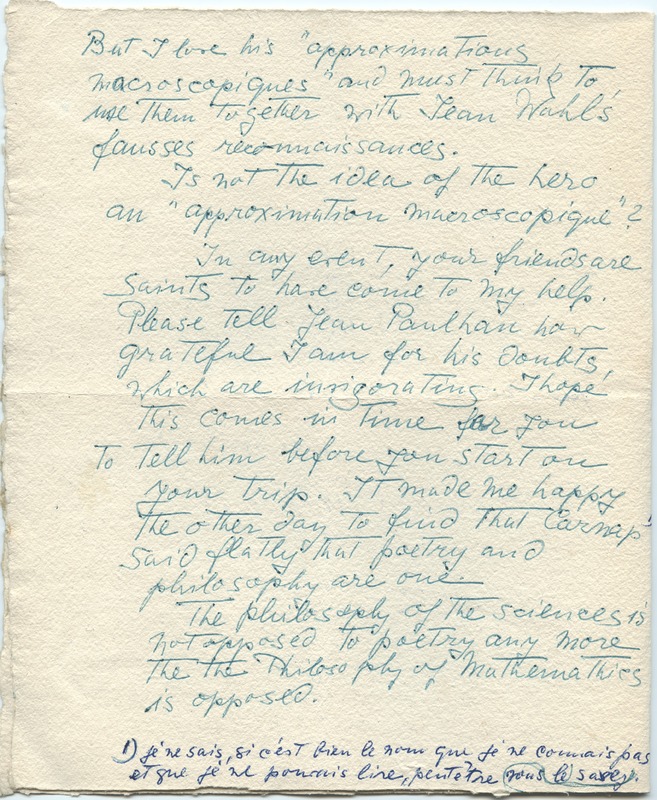 But I love his "approximations
macroscopiques" and must think to
use them together with Jean Wahl's
fausses reconnaissances.
Is not the idea of the hero
an "approximation macroscopique"?
In any event, your friends are
Saints to have come to my help.
Please tell Jean Paulhan how
grateful I am for his doubts,
which are invigorating. I hope
this comes in time for you
to tell him before you start on
your trip. It made me happy
the other day to find that Carnap¹
said flatly that poetry and
philosophy are one.
The philosophy of the sciences is
not opposed to poetry any more
the the Philosophy of Mathematics
is opposed.
1) je ne sais, si c'est bien le nom que je ne connais pas
et que je ne pouvais lire, peutêtre vous le savez.